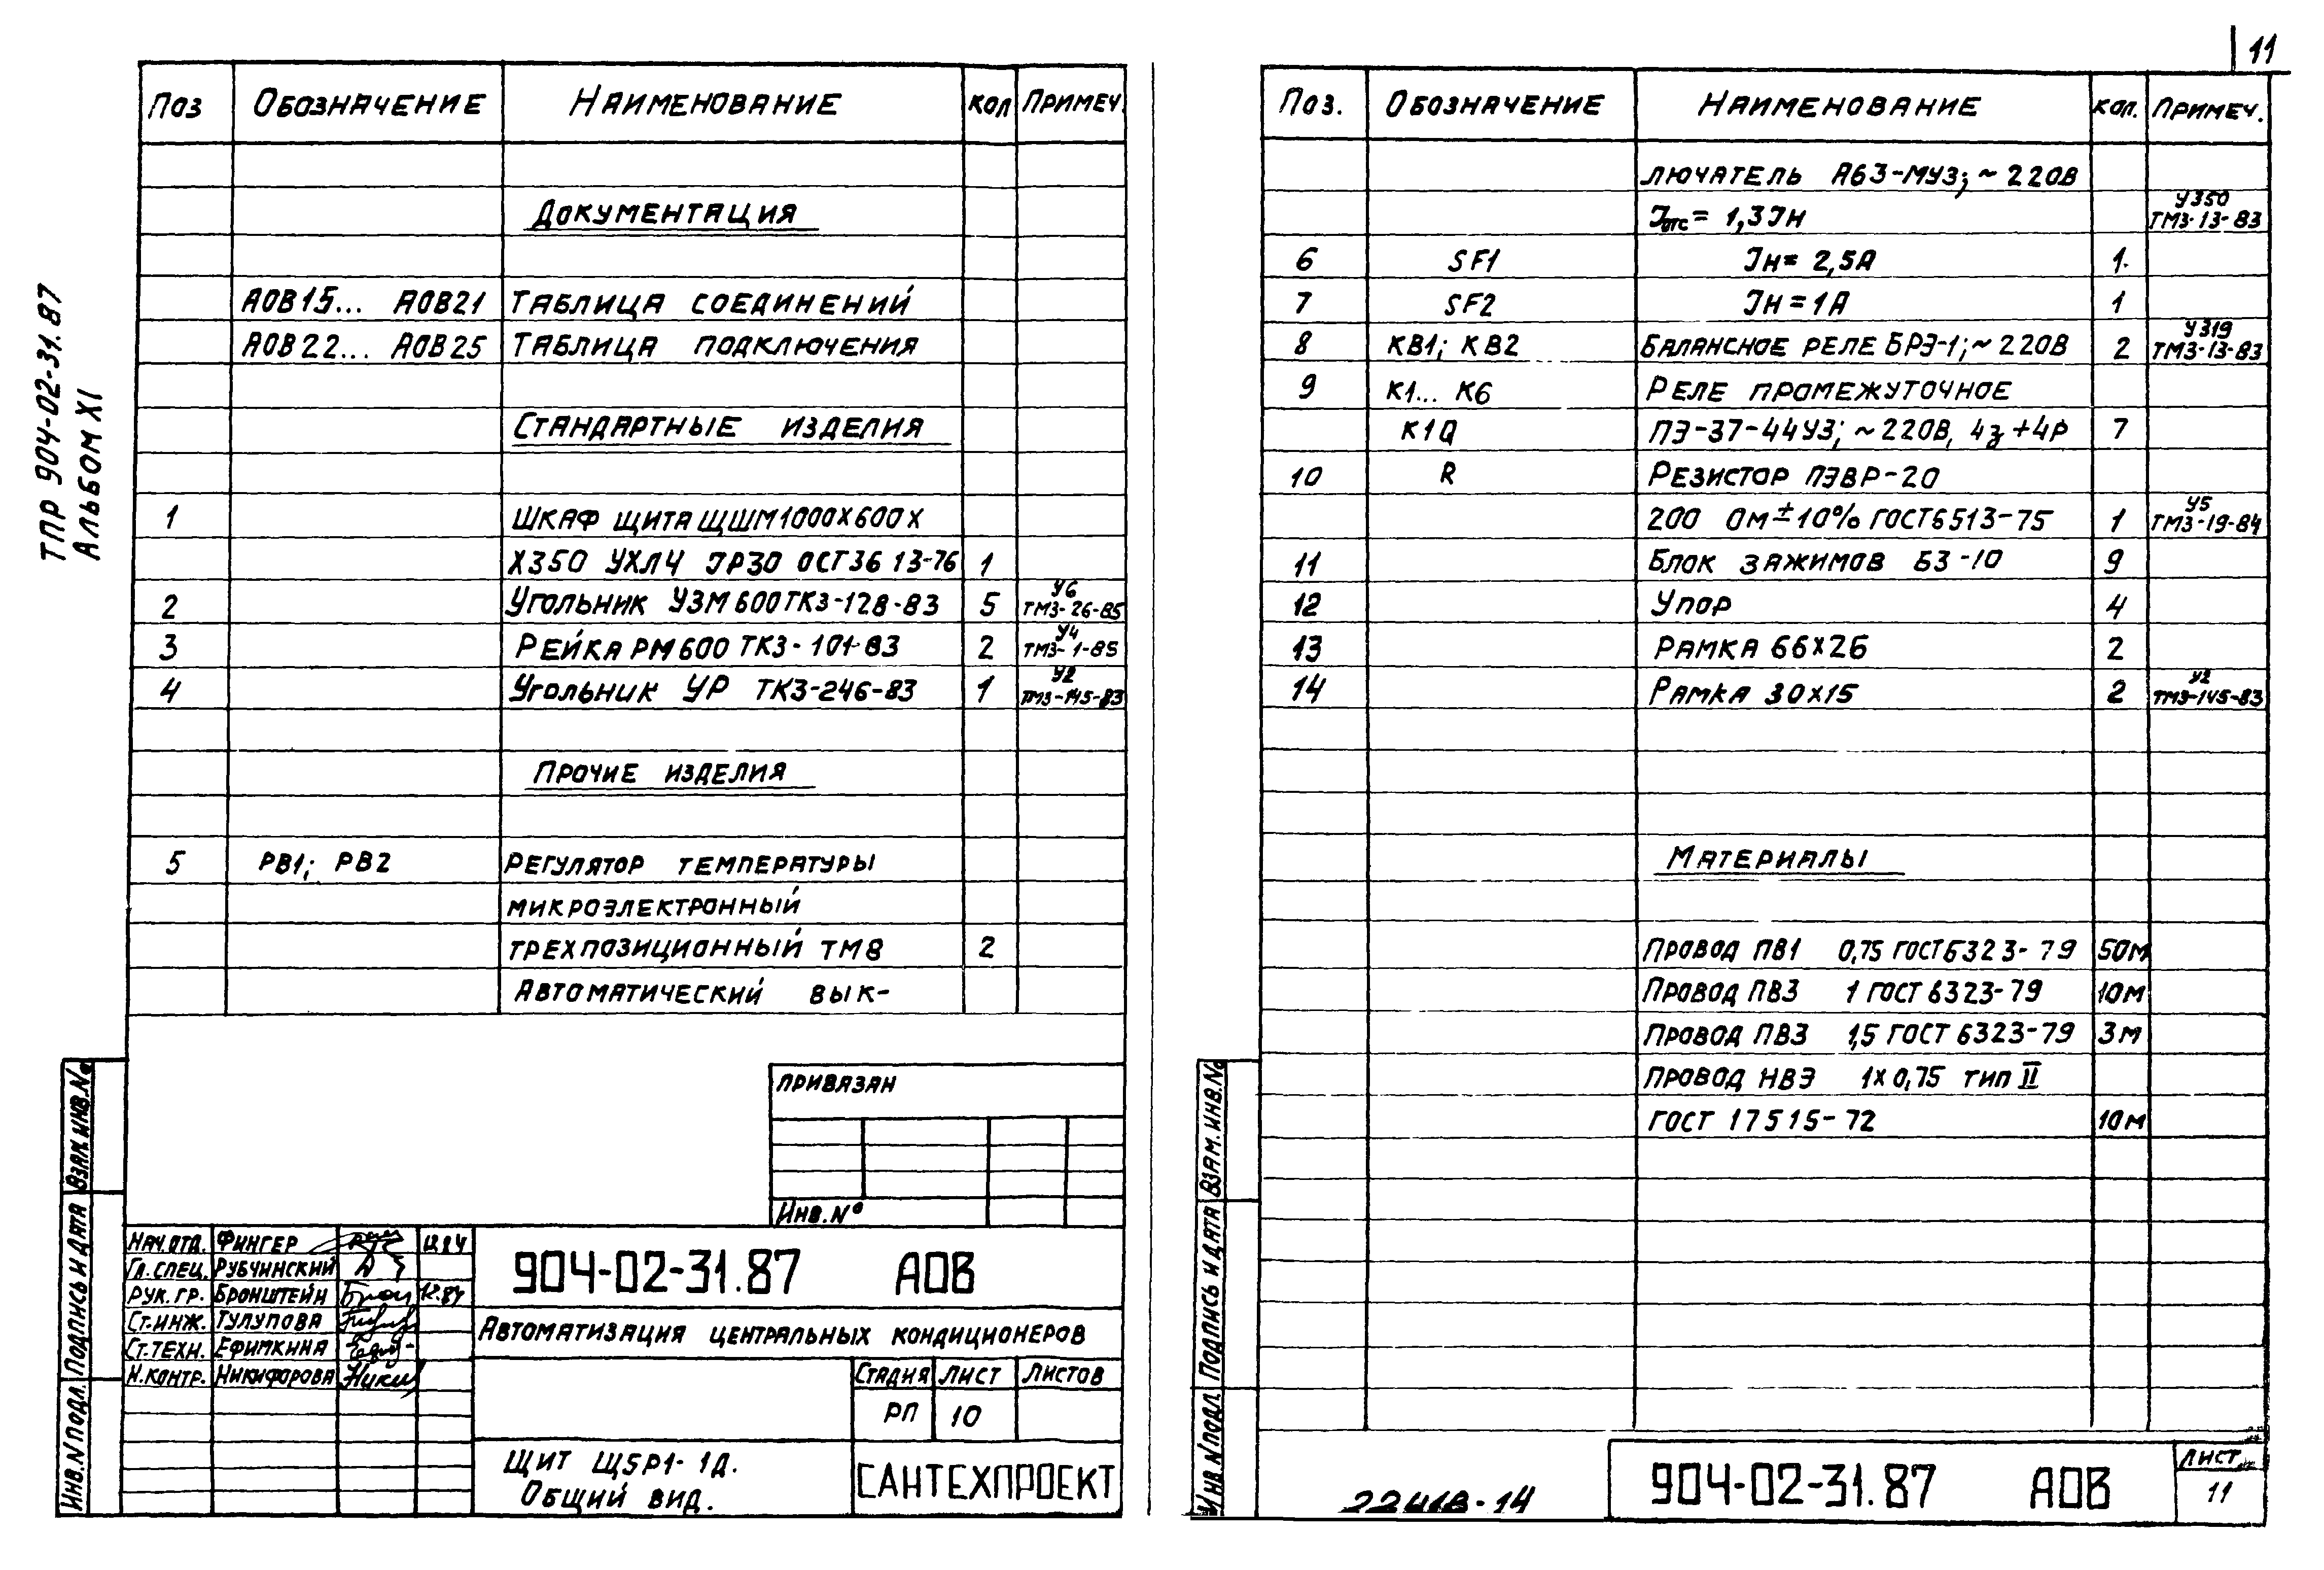 11
ТПР 904-02-31.87
АЛЬБОМ XI
ПОЗ ОБОЗНАЧЕНИЕ НАИМЕНОВАНИЕ КОЛ ПРИМЕЧ.
ДОКУМЕНТАЦИЯ
АОВ15... АОВ21 ТАБЛИЦА СОЕДИНЕНИЙ
АОВ22... АОВ25 ТАБЛИЦА ПОДКЛЮЧЕНИЯ
СТАНДАРТНЫЕ ИЗДЕЛИЯ
1 ШКАФ ЩИТА ЩШМ1000Х600Х
Х350 УХЛ4 IP30 ОСТ36 13-76 1
2 УГОЛЬНИК УЗМ600ТК3-128-83 5 У6 ТМ3-26-85
3 РЕЙКА РМ600 ТК3-101-83 2 У4 ТМ3-1-85
4 УГОЛЬНИК УР ТК3-246-83 1 У2 ТМ3-145-83
ПРОЧИЕ ИЗДЕЛИЯ
5 РВ1; РВ2 РЕГУЛЯТОР ТЕМПЕРАТУРЫ
МИКРОЭЛЕКТРОННЫЙ
ТРЕХПОЗИЦИОННЫЙ ТМ8 2
АВТОМАТИЧЕСКИЙ ВЫК-
ПРИВЯЗАН
ИНВ.№
НАЧ.ОТД. ФИНГЕР 12.84
ГЛ.СПЕЦ. РУБЧИНСКИЙ
РУК.ГР. БРОНШТЕЙН 12.84
СТ.ИНЖ. ТУЛУПОВА
СТ.ТЕХН. ЕФИМКИНА
Н.КОНТР. НИКИФОРОВА
904-02-31.87 АОВ
АВТОМАТИЗАЦИЯ ЦЕНТРАЛЬНЫХ КОНДИЦИОНЕРОВ
СТАДИЯ ЛИСТ ЛИСТОВ
РП 10
ЩИТ Щ5Р1-1Д.
ОБЩИЙ ВИД.
САНТЕХПРОЕКТ
ИНВ.№ПОДЛ. ПОДПИСЬ И ДАТА ВЗАМ.ИНВ.№
ПОЗ. ОБОЗНАЧЕНИЕ НАИМЕНОВАНИЕ КОЛ. ПРИМЕЧ.
ЛЮЧАТЕЛЬ А63-МУ3; ~220В
Iотс= 1,3Iн У350 ТМ3-13-83
6 SF1 Iн= 2,5А 1
7 SF2 Iн=1А 1
8 КВ1; КВ2 БАЛАНСНОЕ РЕЛЕ БРЭ-1;~220В 2 У319 ТМ3-13-83
9 К1... К6 РЕЛЕ ПРОМЕЖУТОЧНОЕ
К1Q ПЭ-37-44У3; ~220В, 4з+4р 7
10 R РЕЗИСТОР ПЭВР-20
200 Ом±10% ГОСТ6513-75 1 У5 ТМ3-19-84
11 БЛОК ЗАЖИМОВ БЗ-10 9
12 УПОР 4
13 РАМКА 66Х26 2
14 РАМКА 30Х15 2 У2 ТМ3-145-83
МАТЕРИАЛЫ
ПРОВОД ПВ1 0,75 ГОСТ6323-79 50М
ПРОВОД ПВ3 1 ГОСТ 6323-79 10М
ПРОВОД ПВ3 1,5 ГОСТ 6323-79 3М
ПРОВОД НВЭ 1Х0,75 ТИП II
ГОСТ 17515-72 10М
ИНВ.№ПОДЛ. ПОДПИСЬ И ДАТА ВЗАМ.ИНВ.№
904-02-31.87 АОВ
ЛИСТ
11